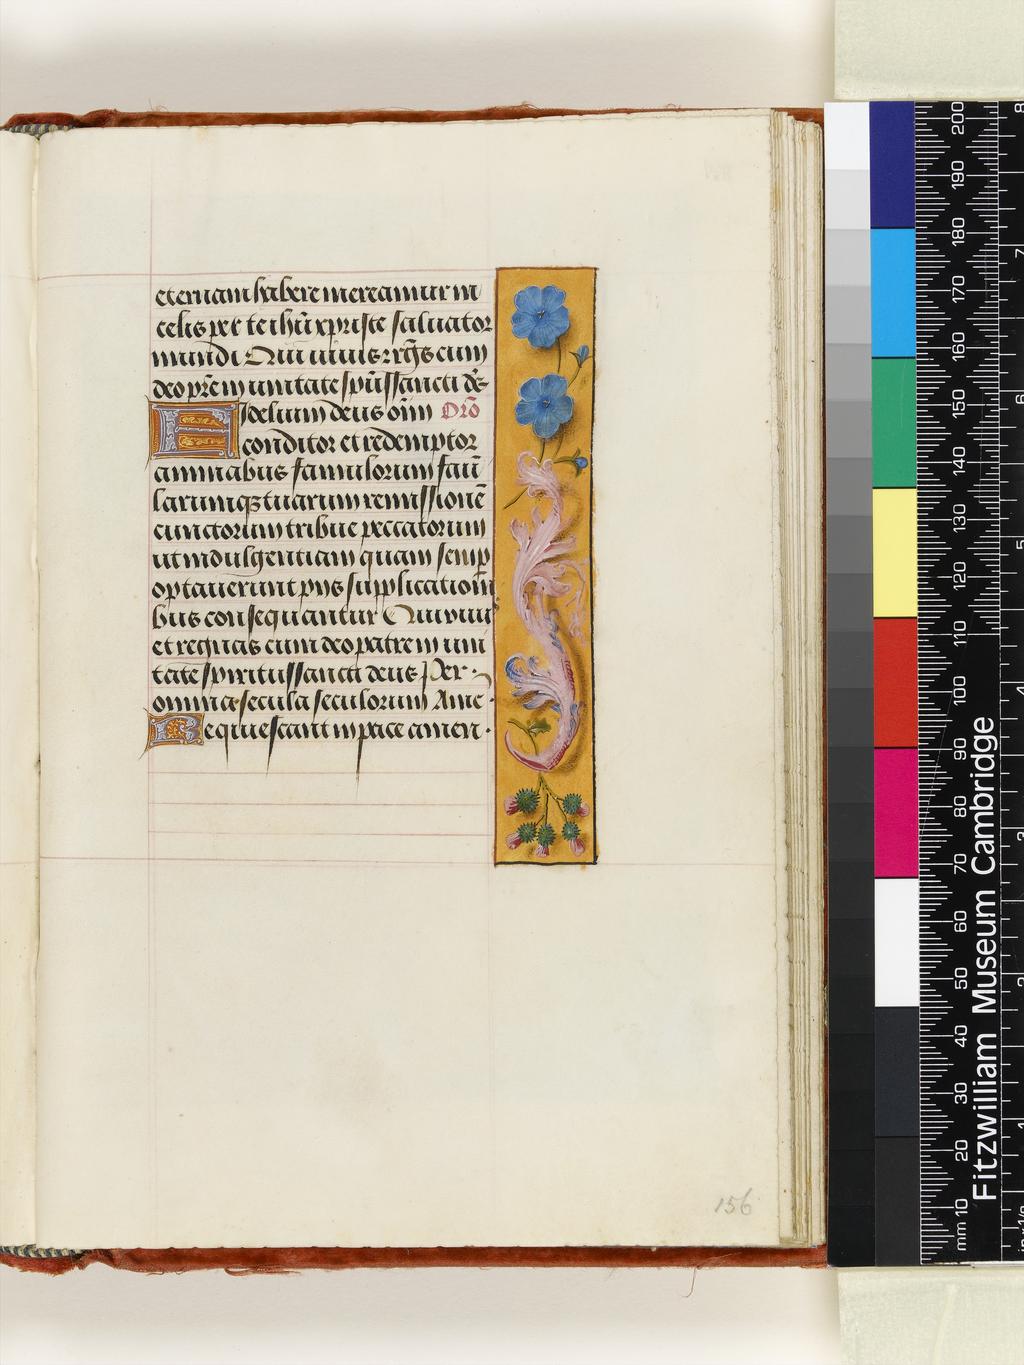 eternam habere mereamur in
celis per te ihū xpriste saluator
mundi Qui uiuis ⁊ rēgs cum
deo prē in unitate spūs sancti ds̄
Fidelium deus oīm Orō
conditor et redemptor
animabus famulorum fāu
larumqꝫ tuarum remissionē
cunctorum tribue peccatorum
ut indulgentiam quam semp̄
optauerunt pijs supplicationi
bus consequantur Qui viuis
et regnas cum deo patre in uni
tate spiritus sancti deus Per
omnia secula seculorum Amē
Requiescant in pace amen
156
Fitzwilliam Museum Cambridge
mm 10 20 30 40 50 60 70 80 90 100 110 120 130 140 150 160 170 180 190 200